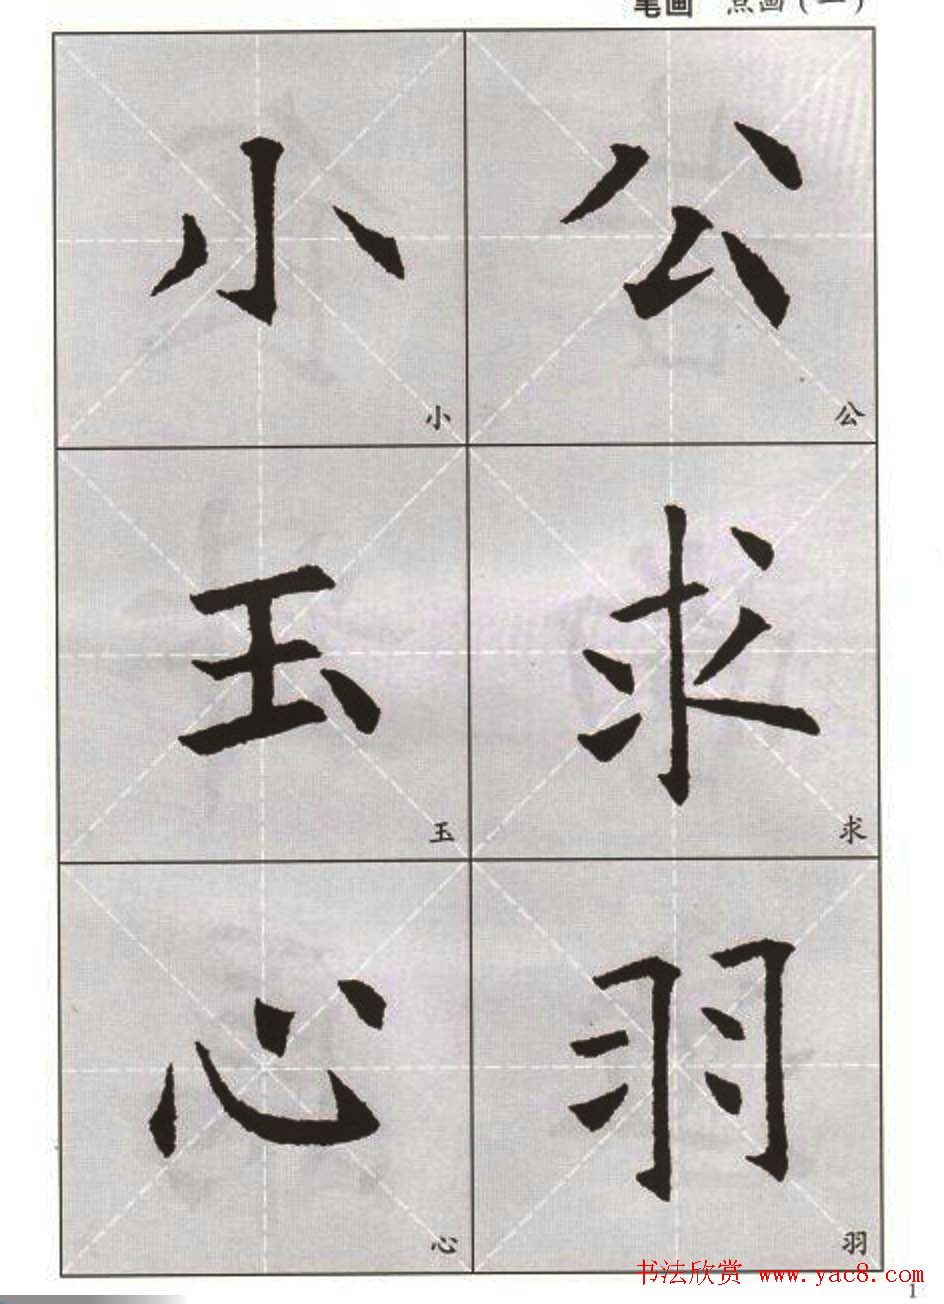 笔画 点画(一)
小 公
小 公
玉 求
玉 求
心 羽
心 羽
书法欣赏 www.yac8.com
1